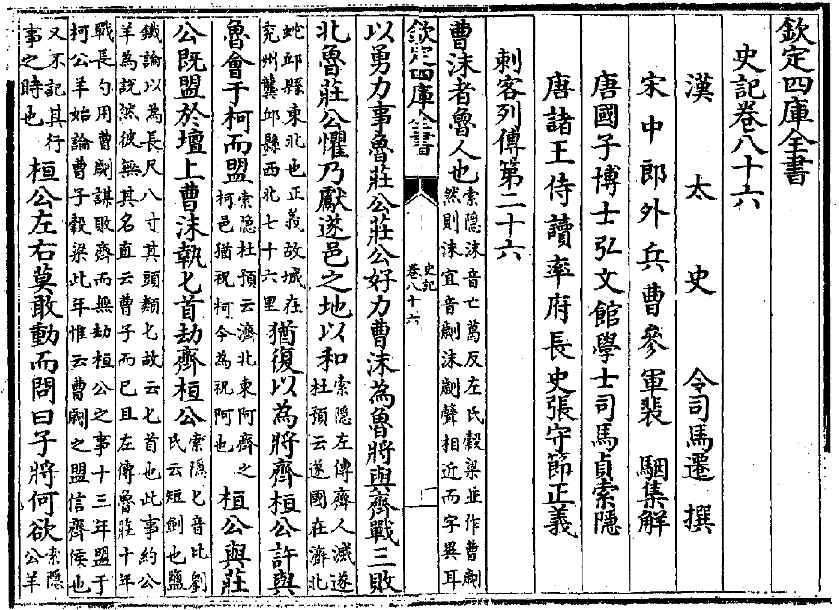 欽定四庫全書
史記卷八十六
漢太史令司馬遷撰
宋中郎外兵曹參軍裴駰集解
唐國子博士弘文館學士司馬貞索隱
唐諸王侍讀率府長史張守節正義
刺客列傳第二十六
曹沫者魯人也索隱沫音亡葛反左氏穀梁並作曹劌然則沫宜音劌沫劌聲相近而字異耳
欽定四庫全書 史記卷八十六 一
以勇力事魯莊公莊公好力曹沫為魯將與齊戰三敗
北魯莊公懼乃獻遂邑之地以和索隱左傳齊人滅遂杜預云遂國在濟北
蛇邱縣東北也正義故城在兗州龔邱縣西北七十六里猶復以為將齊桓公許與
魯會于柯而盟索隱杜預云濟北東阿齊之柯邑猶祝柯今為祝阿也桓公與莊
公既盟於壇上曹沫執匕首劫齊桓公索隱匕音比劉氏云短劍也鹽
鐵論以為長尺八寸其頭類匕故云匕首也此事約公羊為說然彼無其名直云曹子而已且左傳魯莊十年
戰長勺用曹劌謀敗齊而無劫桓公之事十三年盟于柯公羊始論曹子穀梁此年惟云曹劌之盟信齊侯也
又不記其行事之時也桓公左右莫敢動而問曰子將何欲索隱公羊